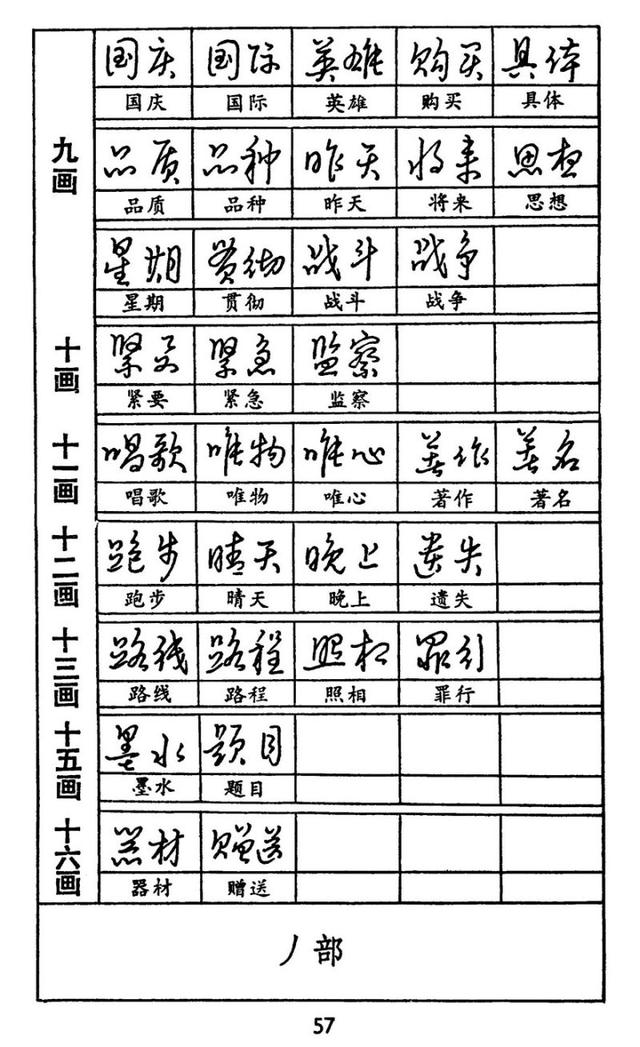 国庆 国际 英雄 购买 具体
国庆 国际 英雄 购买 具体
九画
品质 品种 昨天 将来 思想
品质 品种 昨天 将来 思想
星期 贯彻 战斗 战争
星期 贯彻 战斗 战争
十画
紧要 紧急 监察
紧要 紧急 监察
十一画
唱歌 唯物 唯心 著作 著名
唱歌 唯物 唯心 著作 著名
十二画
跑步 晴天 晚上 遗失
跑步 晴天 晚上 遗失
十三画
路线 路程 照相 罪行
路线 路程 照相 罪行
十五画
墨水 题目
墨水 题目
十六画
器材 赠送
器材 赠送
丿部
57